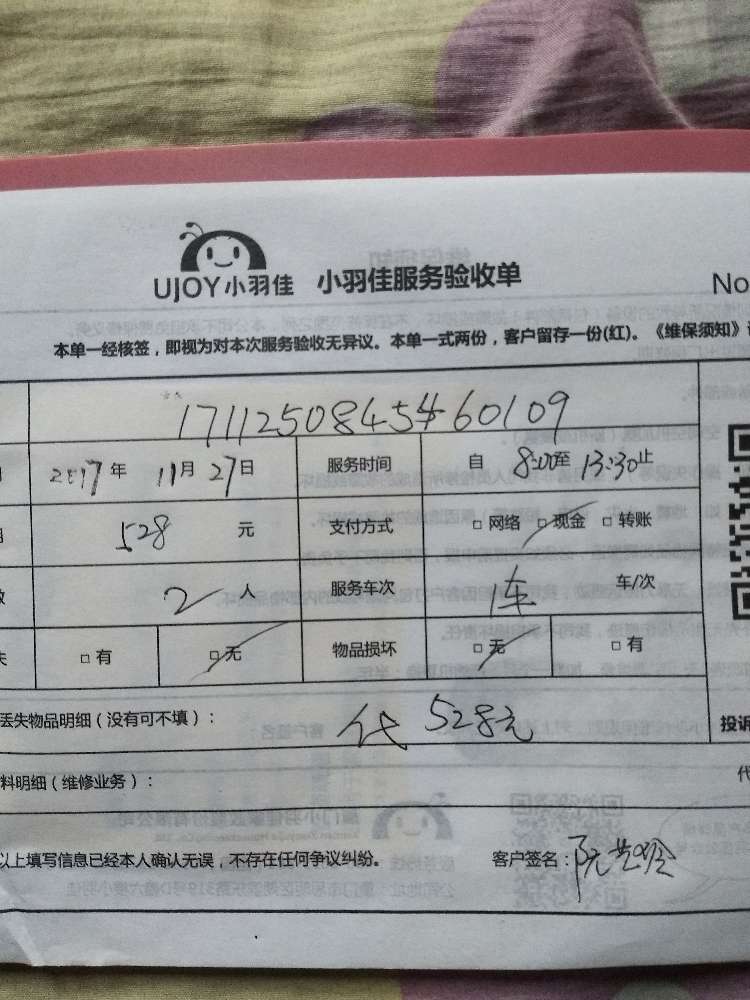 UJOY小羽佳 小羽佳服务验收单 No
本单一经核签，即视为对本次服务验收无异议。本单一式两份，客户留存一份(红)。《维保须知》
2017年 11月 27日 服务时间 自 8:00至 13:30止
528 元 支付方式 □ 网络 □ 现金 □ 转账
2 人 服务车次 1车 车/次
□ 有 □ 无 物品损坏 □ 无 □ 有
丢失物品明细（没有可不填）： 代 528元 投诉
料明细（维修业务）： 代
以上填写信息已经本人确认无误，不存在任何争议纠纷。 客户签名：